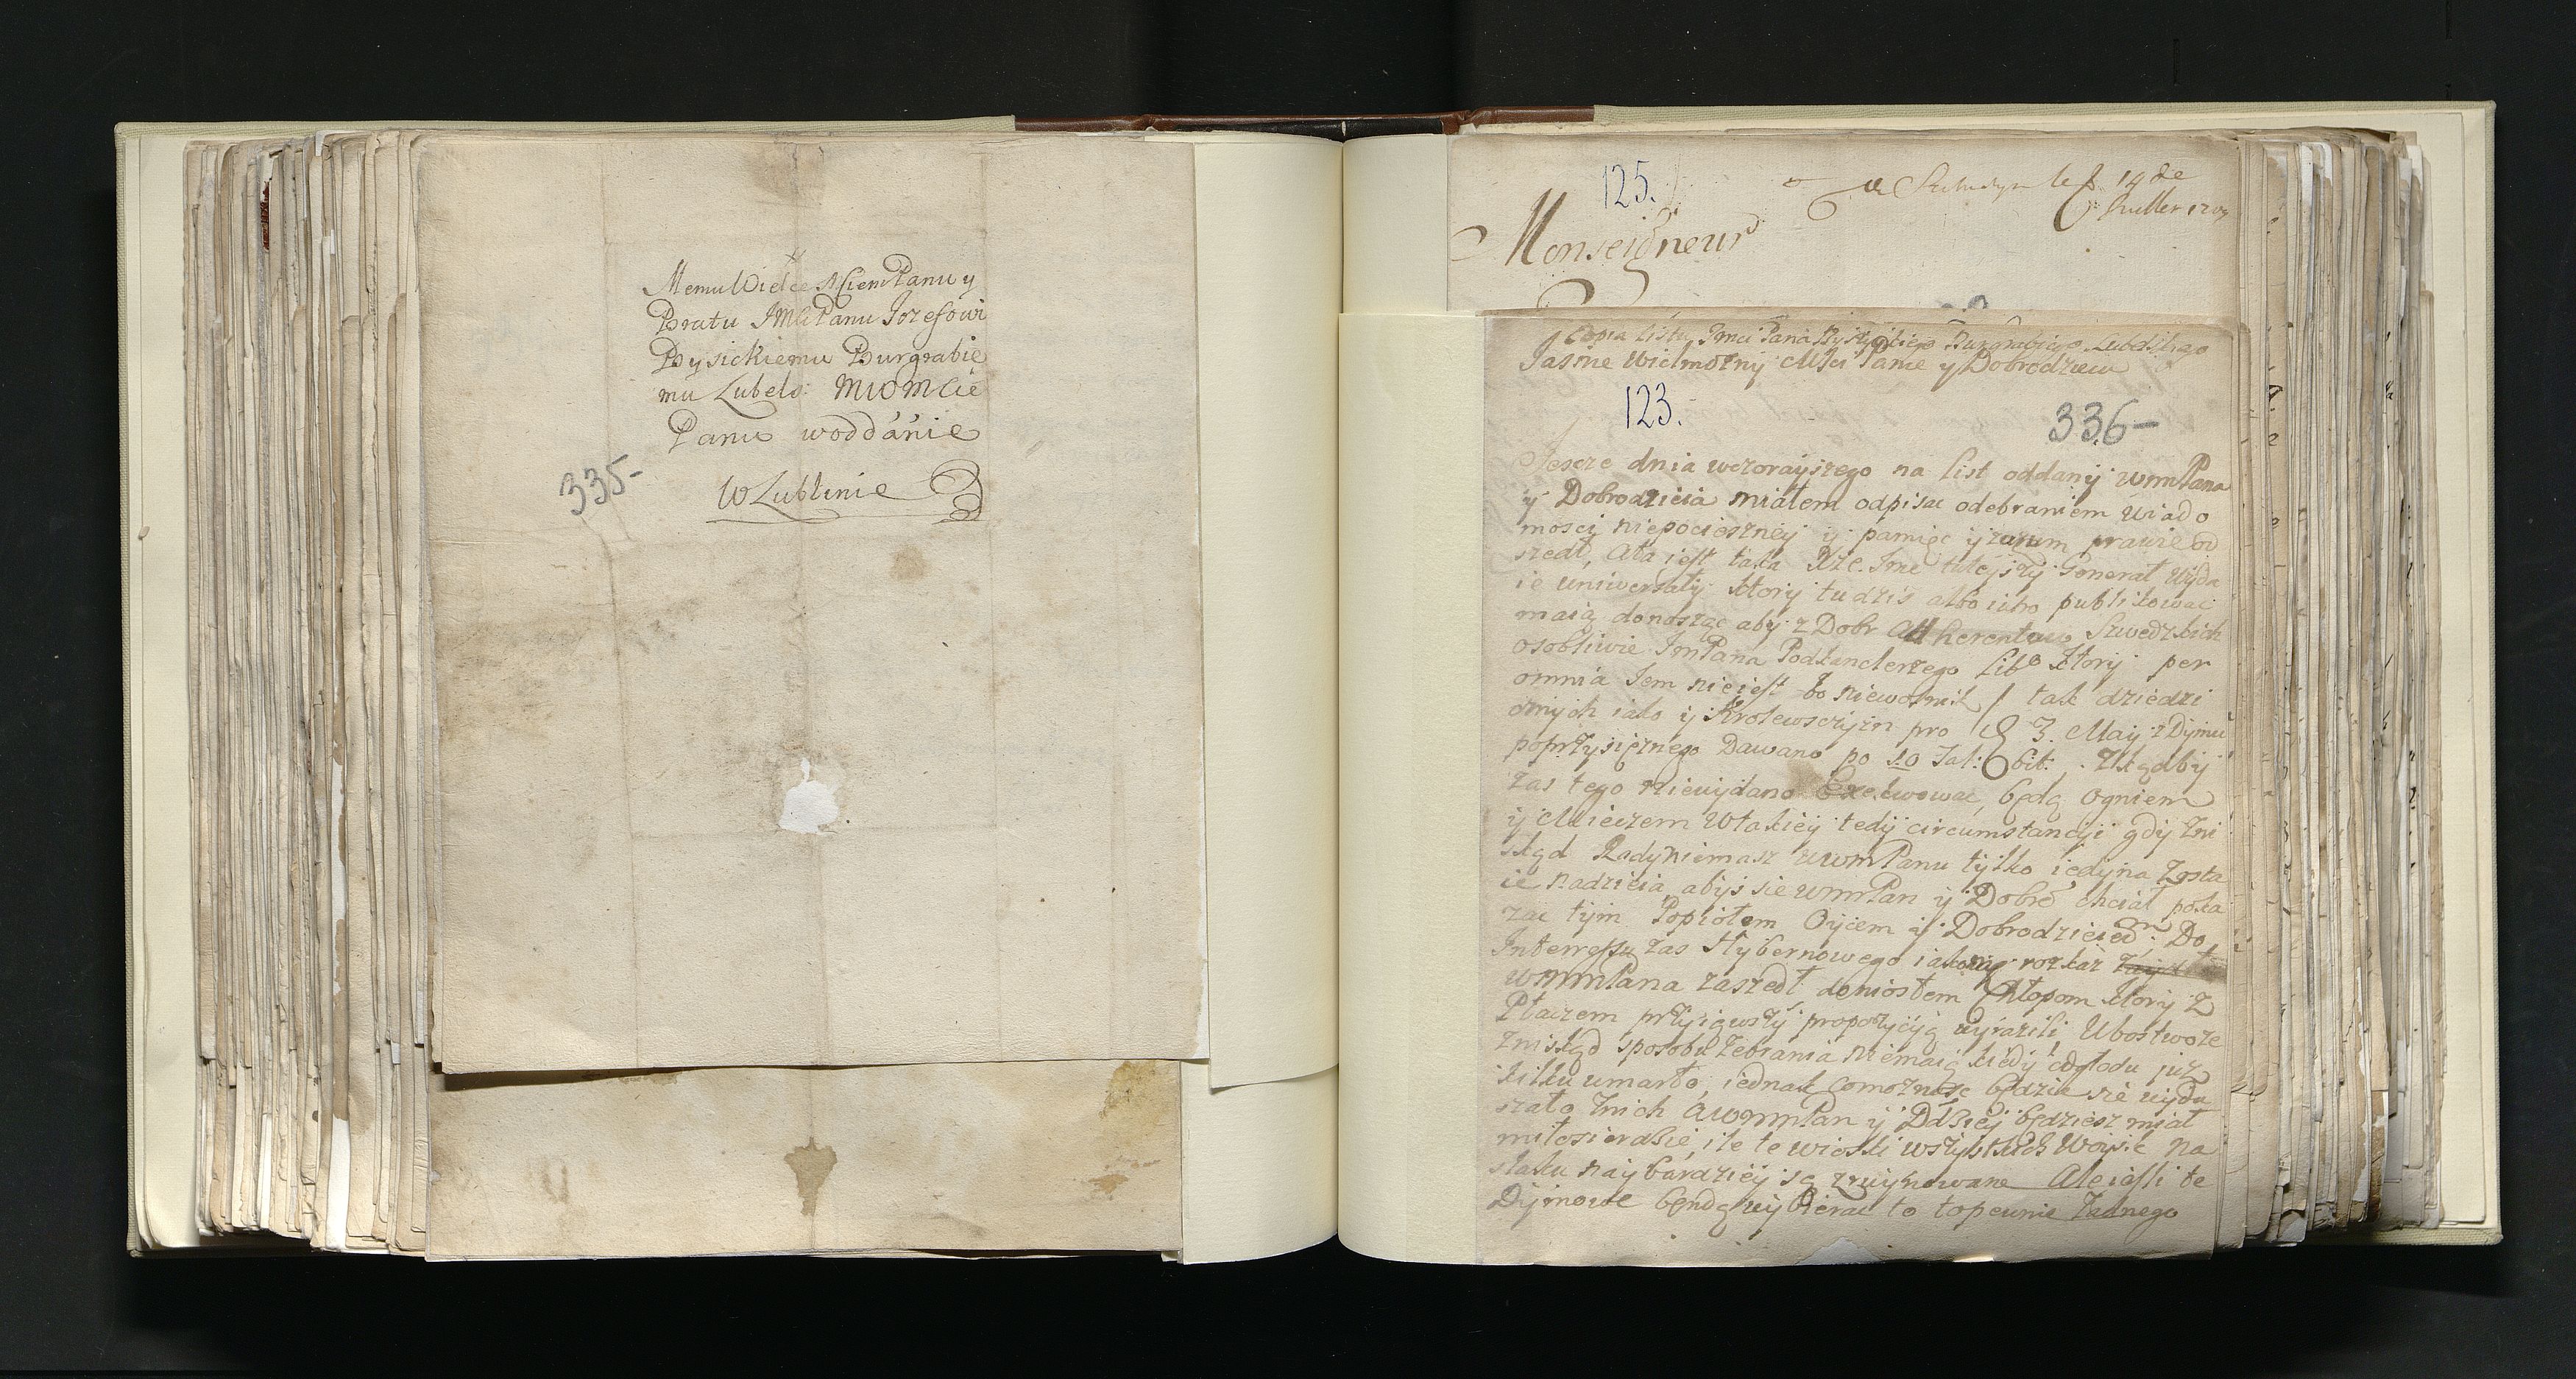 Memu Wielce Mciem Panu y
Bratu JMCi Panu Jozefowi
Bysickiemu Burgrabie
mu Lubels: MWMCie
Panu woddanie
W Lublinie
335-
125.
le 19 de
Monseigneur
Copia listu Jmci Pana Burgrabiego Lubelskiego
Jasnie Wielmozny Mści Panie y Dobrodzieiu
123.
336-
Jescze dnia wczorayszego na list oddany WmmPana
y Dobrodzieia miałem odpisac odebraniem wiado
mosci niepocieszney y pamięc y rozum prawie od
szedł, Ata iest taka Xże Jme tuteyszy Generał wyda
ie uniwersały ktory tu dzis albo iutro publikowac
maią donosząc aby z Dobr Adherentow Szwedzkich
osobliwie JmPana Podkanclerzego Lito ktory per
omnia Jem nie iest bo niewolnik / tak dziedzi
cznych iako y Krolewsczyzn pro 3. Maij z Dymu
poprzysięznego Dawano po 10 Tal: bit: Zkądby
zas tego niewydano Exekwowac, będą ogniem
y Mieczem Wtakiey tedy circumstancyi gdy zni
skąd Rady niemasz uwmPanu tylko iedyna zosta
ie nadzieia, abys sie WmmPan y Dobrd chciał poka
zac tym Popiołom Oycem y Dobrodzieiem: Do
Interressu zas Hybernowego iako rozkaz
WmmPana zaszedł doniosłem Chłopom ktory z
Płaczem przyiąwszy propozycyą wyrazili, Ubostwo ze
zniskąd sposobu zebrania niemaią kiedy odgłodu już
kilku umarło, iednak comoznosc będzie sie wydu
szało znich AwmmPan y Ddziey będziesz miał
miłosierdzie, ile te wioski wszystkich Woysk na
slaku naybardziey są zruynowane Ale iesli te
Dymowe będą wybierac to to pewnie zadnego